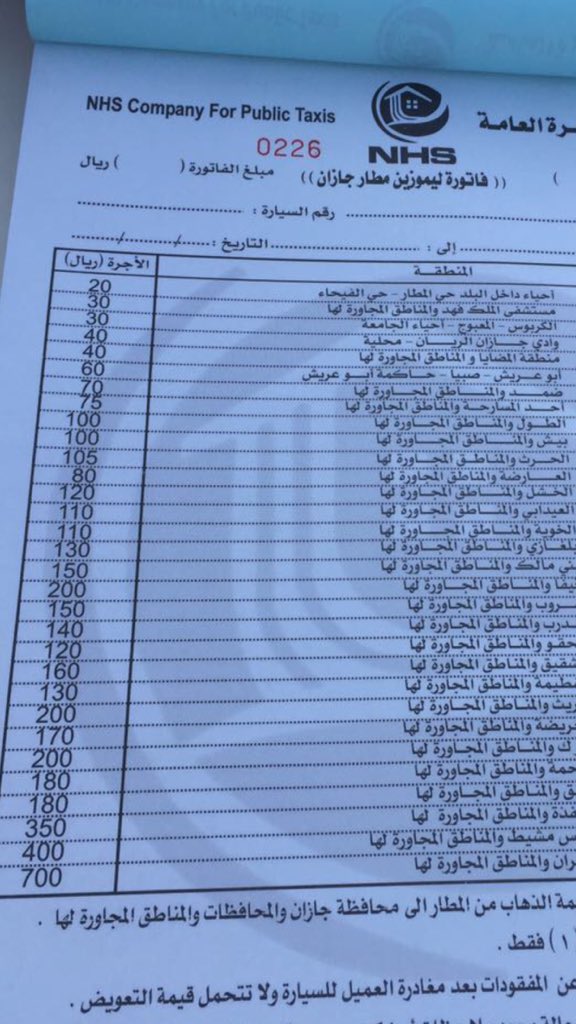 NHS Company For Public Taxis
رة العامة
NHS
0226
(( فاتورة ليموزين مطار جازان )) مبلغ الفاتورة ( ) ريال
رقم السيارة :
إلى : التاريخ : / /
المنطقة الأجرة (ريال)
أحياء داخل البلد حي المطار - حي الفيحاء 20
مستشفى الملك فهد والمناطق المجاورة لها 30
الكربوس - المعبوج - أحياء الجامعة 30
وادي جازان الريان - محلية 40
منطقة المضايا و المناطق المجاورة لها 40
ابو عريش - صبيا - حاكمة ابو عريش 60
ضمد والمناطق المجاورة لها 70
أحد المسارحة والمناطق المجاورة لها 75
الطول والمناطق المجاورة لها 100
بيش والمناطق المجاورة لها 100
الحرث والمناطق المجاورة لها 105
العارضة والمناطق المجاورة لها 80
الخشل والمناطق المجاورة لها 120
العيدابي والمناطق المجاورة لها 110
الخوبة والمناطق المجاورة لها 110
بلغازي والمناطق المجاورة لها 130
ني مالك والمناطق المجاورة لها 150
يفا والمناطق المجاورة لها 200
روب والمناطق المجاورة لها 150
درب والمناطق المجاورة لها 140
حقو والمناطق المجاورة لها 120
شقيق والمناطق المجاورة لها 160
طيمة والمناطق المجاورة لها 130
ريث والمناطق المجاورة لها 200
ريضة والمناطق المجاورة لها 170
رك والمناطق المجاورة لها 200
حمة والمناطق المجاورة لها 180
ق والمناطق المجاورة لها 180
فذة والمناطق المجاورة لها 350
س مشيط والمناطق المجاورة لها 400
ران والمناطق المجاورة لها 700
مة الذهاب من المطار الى محافظة جازان والمحافظات والمناطق المجاورة لها .
١ ) فقط .
عن المفقودات بعد مغادرة العميل للسيارة ولا تتحمل قيمة التعويض .